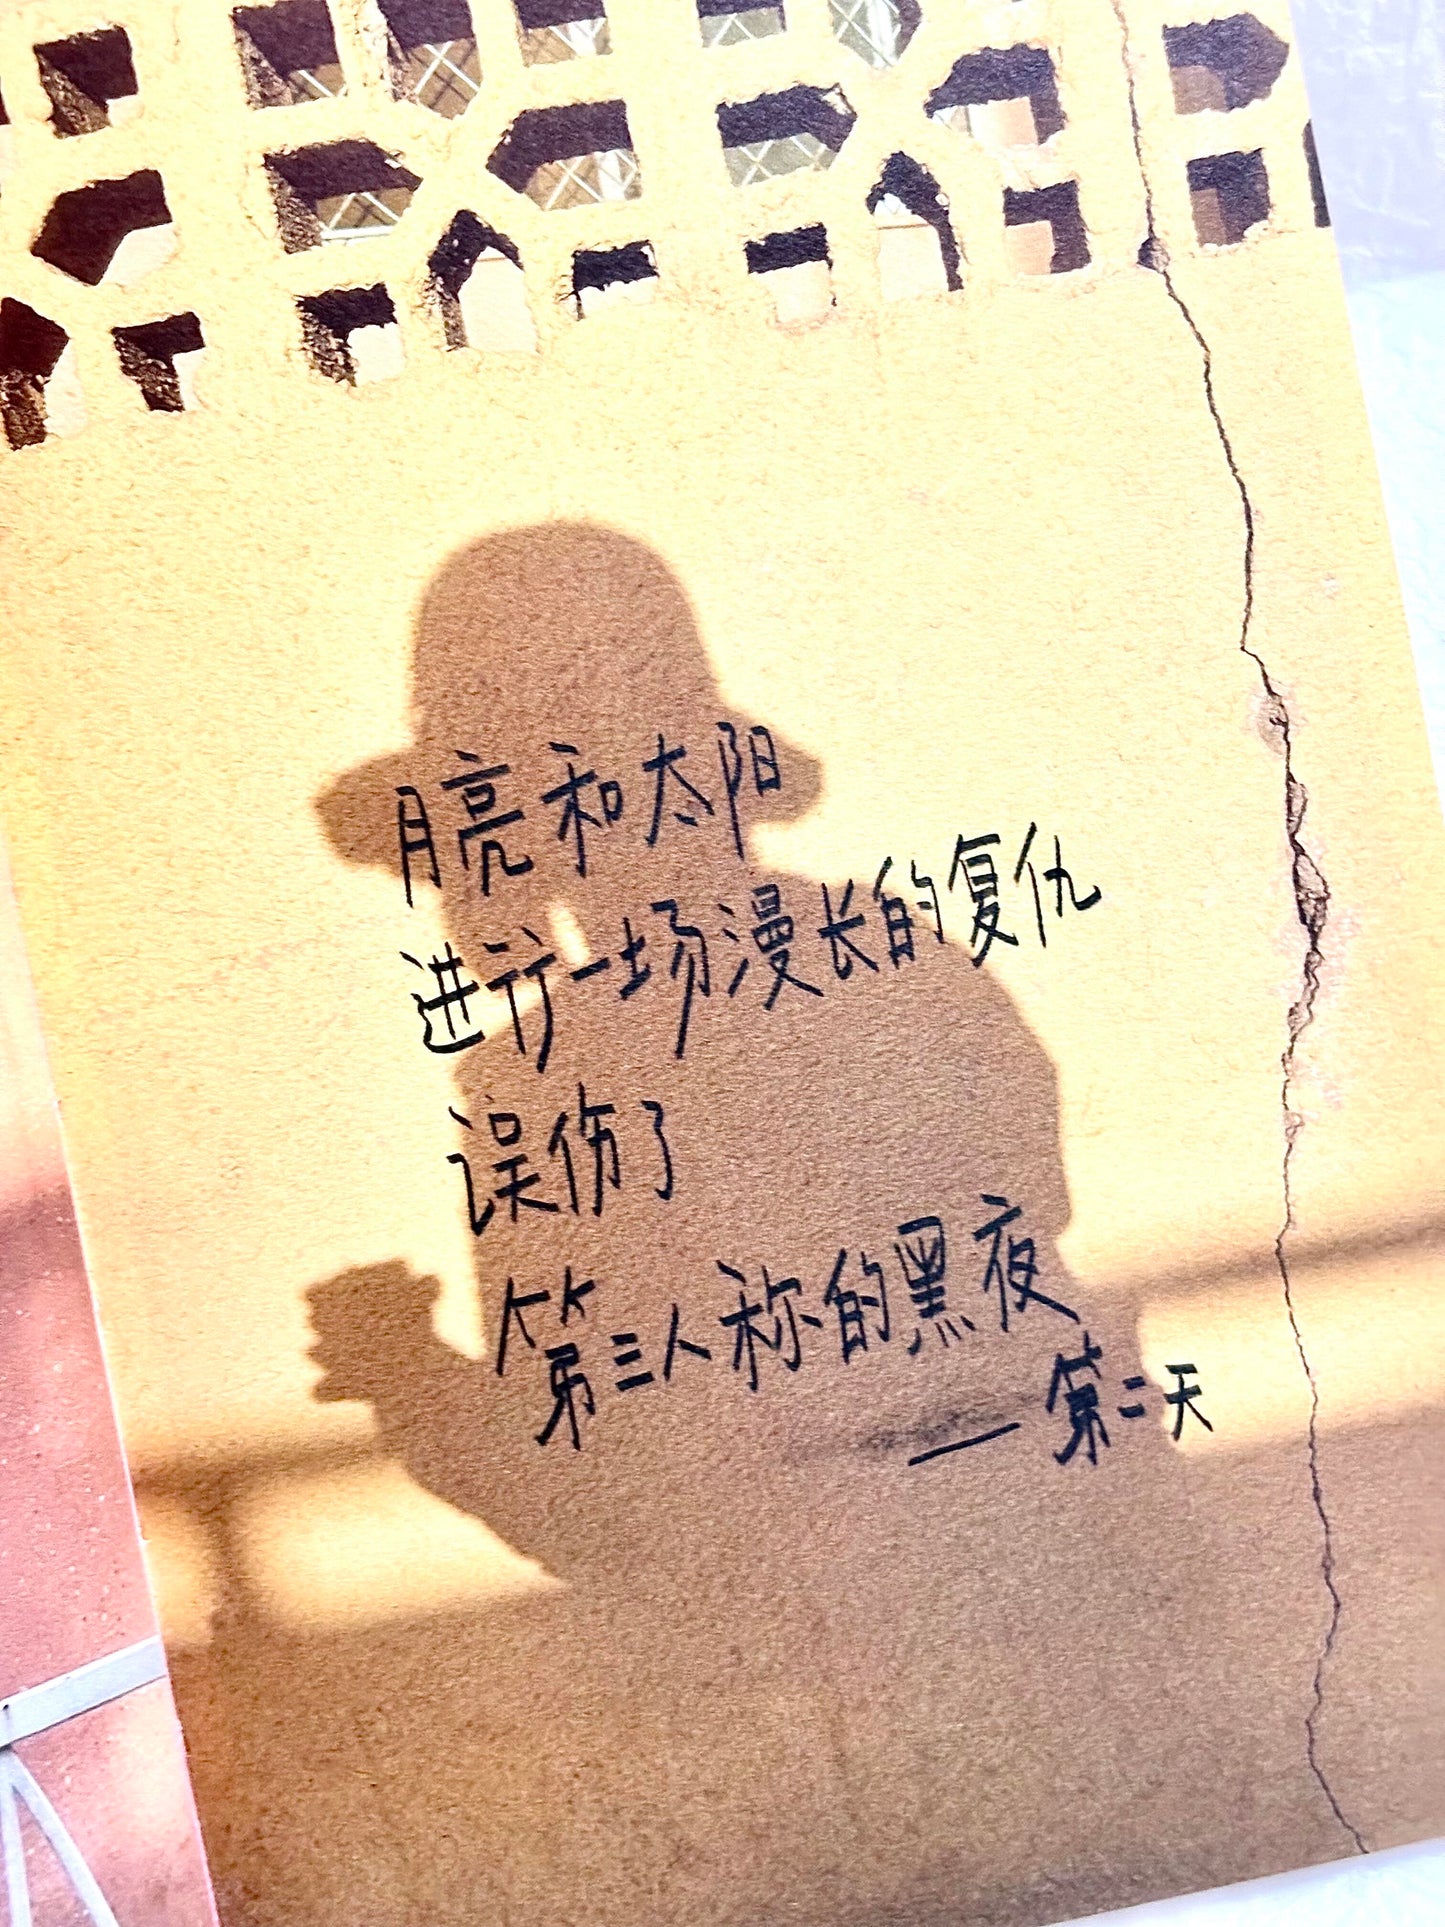 月亮和太阳
进行一场漫长的复仇
误伤了
第三人称的黑夜
——第二天